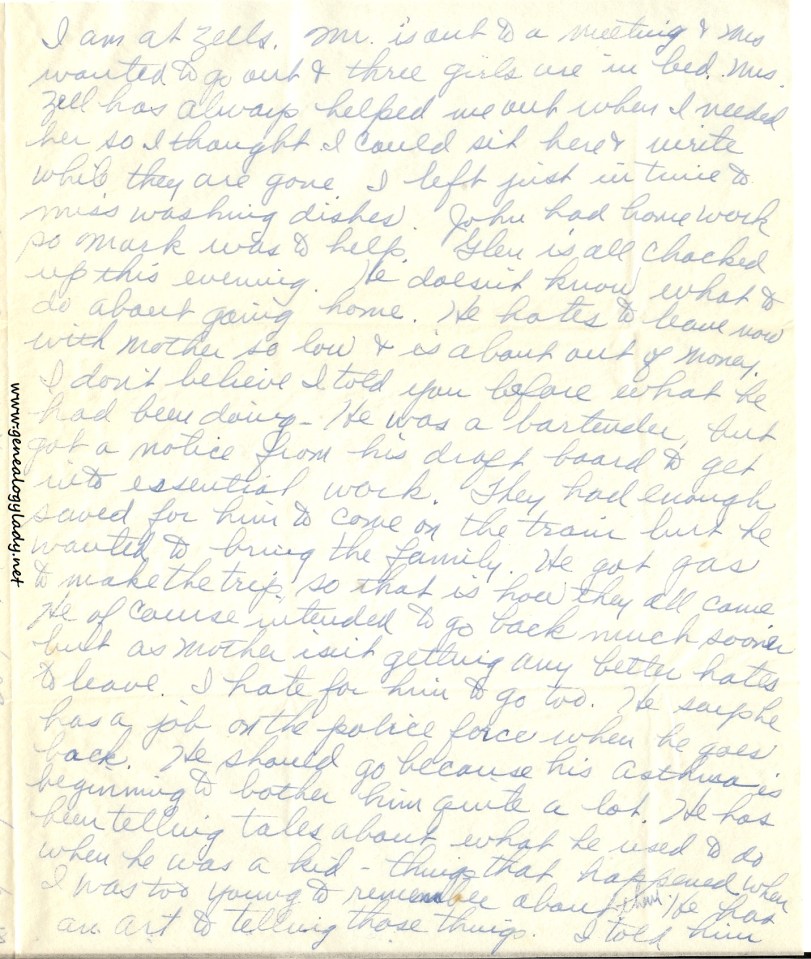 I am at Zells. Mr. is out to a meeting & Mrs
wanted to go out & three girls are in bed. Mrs.
Zell has always helped me out when I needed
her so I thought I could sit here & write
while they are gone. I left just in time to
miss washing dishes. John had home work
so Mark was to help. Glen is all chocked
up this evening. He doesn't know what to
do about going home. He hates to leave now
with Mother so low & is about out of money.
I don't believe I told you before what he
had been doing - He was a bartender, but
got a notice from his draft board to get
into essential work. They had enough
saved for him to come on the train but he
wanted to bring the family. He got gas
to make the trip, so that is how they all came
He of course intended to go back much sooner
but as Mother isn't getting any better hates
to leave. I hate for him to go too. He says he
has a job on the police force when he goes
back. He should go because his asthma is
beginning to bother him quite a lot. He has
been telling tales about what he used to do
when he was a kid - things that happened when
I was too young to remember about them. He has
an art to telling those things. I told him
www.genealogylady.net